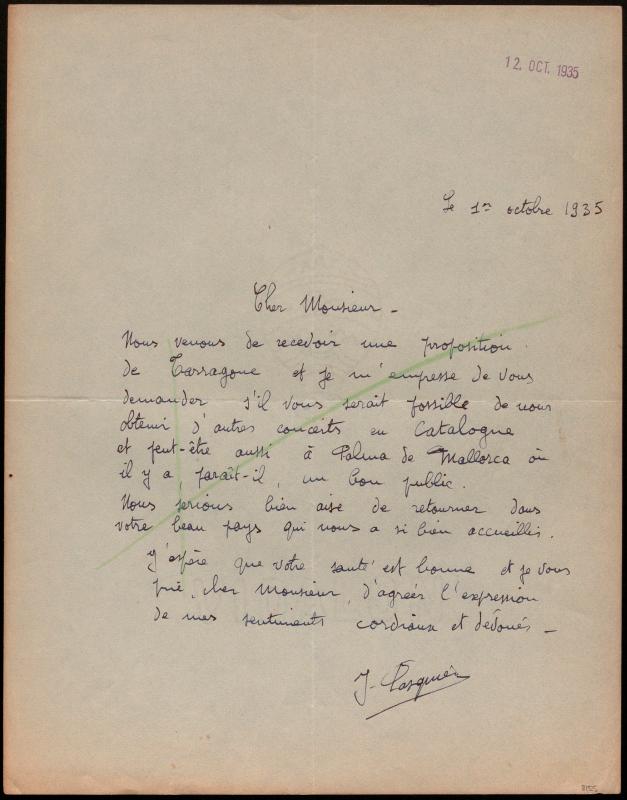 12. OCT. 1935
Le 1er octobre 1935
Cher Monsieur -
Nous venons de recevoir une proposition
de Tarragone et je m'empresse de vous
demander s'il vous serait possible de nous
obtenir d'autres concerts en Catalogne
et peut-être aussi à Palma de Mallorca où
il y a, paraît-il, un bon public.
Nous serions bien aise de retourner dans
votre beau pays qui nous a si bien accueillis.
J'espère que votre santé est bonne et je vous
prie, cher Monsieur, d'agréer l'expression
de mes sentiments cordiaux et dévoués -
J. Pasquier